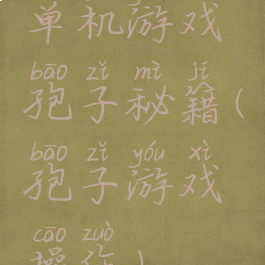 单机游戏
bāo zǐ mì jí
孢子秘籍(
bāo zǐ yóu xì
孢子游戏
cāo zuò
操作)